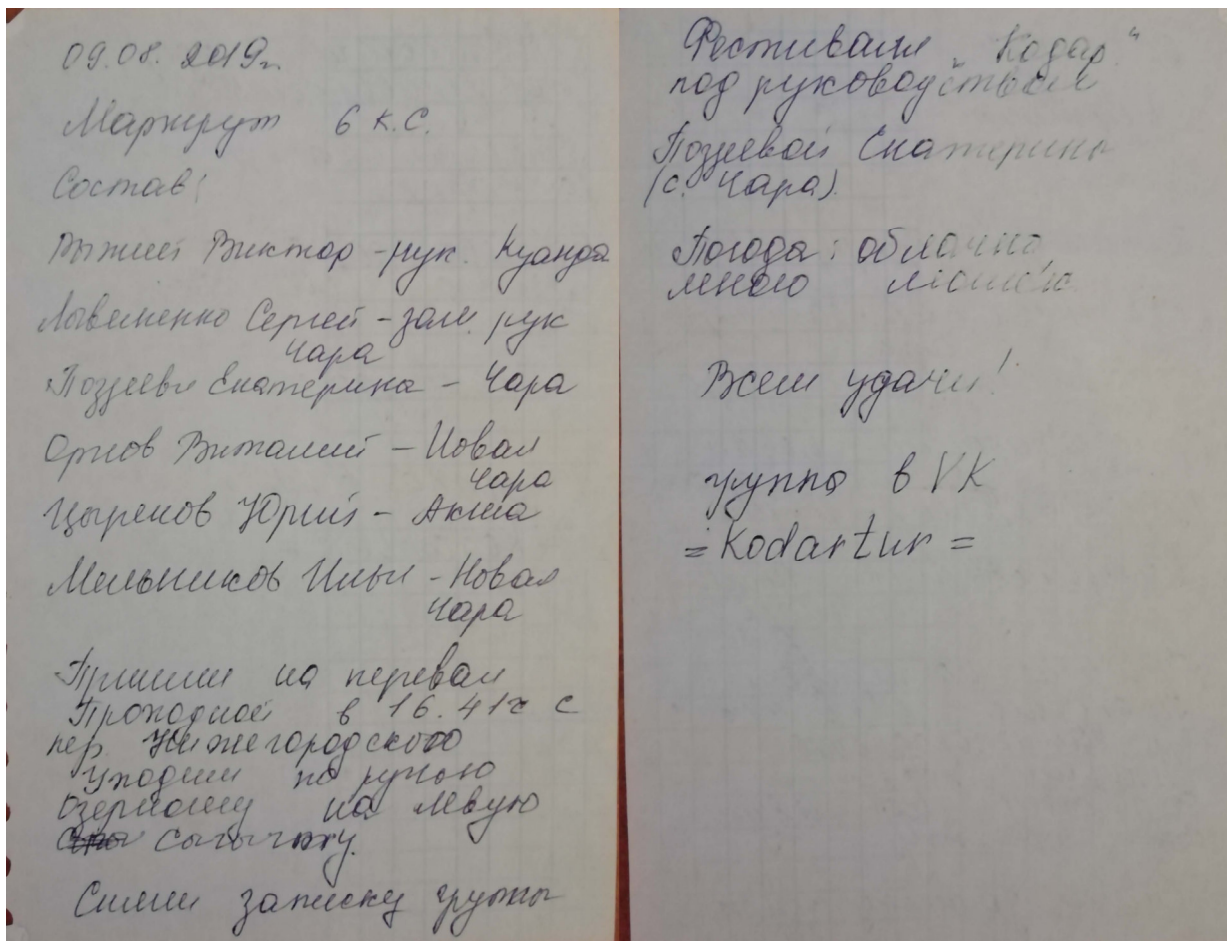 09.08.2019г.
Маршрут 6 к.с.
Состав:
Виктор - рук. Куанда
Сергей - зам. рук
Чара
Позднеева Екатерина - Чара
Виталий - Новая
Чара
Цыренов Юрий - Акша
Мельников Илья - Новая
Чара
Пришли на перевал
Проходной в 16.41ч с
пер. Нижегородского
Уходим по ручью
Озерному на левую
Сыгыкту.
Сняли записку группы
Фестиваля "Кодар"
под руководством
Екатерины
(с. Чара).
Погода: облачно,
много мошки
Всем удачи!
группа в VK
= Kodartur =